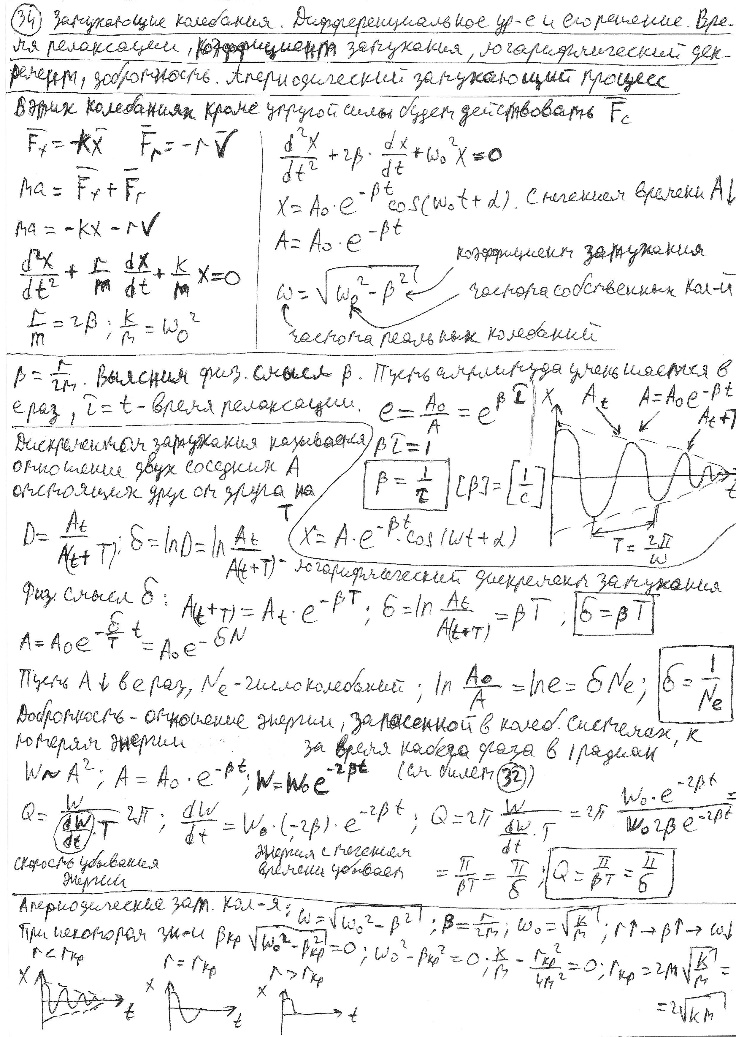 (34) Затухающие колебания. Дифференциальное ур-е и его решение. Вре-
мя релаксации, коэффициент затухания, логарифмический дек-
ремент, добротность. Апериодический затухающий процесс
В этих колебаниях кроме упругой силы будет действовать F̅c
F̅x = -kx̅   F̅r = -rV̅
ma = F̅x + F̅r
ma = -kx - rV
d²x/dt² + r/m dx/dt + k/m x = 0
r/m = 2β; k/m = ω₀²
d²x/dt² + 2β · dx/dt + ω₀²x = 0
X = A₀·e^(-βt) cos(ω₀t + α). С течением времени A↓
A = A₀·e^(-βt)
коэффициент затухания
ω = √(ω₀² - β²)
частота собственных кол-й
частота реальных колебаний
β = r/2m. Выясним физ. смысл β. Пусть амплитуда уменьшается в
e раз, τ = t - время релаксации. e = A₀/A = e^(βτ)
βτ = 1
β = 1/τ   [β] = [1/c]
X   At   A = A₀e^(-βt)   At+T
t
T = 2π/ω
Дискрементом затухания называется
отношение двух соседних A
отстоящих друг от друга на
T
D = At/A(t+T); δ = lnD = ln At/A(t+T) - логарифмический дискремент затухания
X = A·e^(-βt)·cos(ωt + α)
Физ. смысл δ: A(t+T) = At·e^(-βT); δ = ln At/A(t+T) = βT; δ = βT
A = A₀e^(-δ/T t) = A₀e^(-δN)
Пусть A↓ в e раз, Ne - число колебаний; ln A₀/A = lne = δNe; δ = 1/Ne
Добротность - отношение энергии, запасенной в колеб. системах, к
потерям энергии за время набега фаза в 1 радиан
W~A²; A = A₀·e^(-βt); W = W₀e^(-2βt) (см билет (32))
Q = W/(dW/dt·T) 2π; dW/dt = W₀·(-2β)·e^(-2βt); Q = 2π W/(dW/dt·T) = 2π W₀·e^(-2βt)/W₀2βe^(-2βt) =
скорость убывания
энергии
энергия с течением
времени убывает
= π/βT = π/δ; Q = π/βT = π/δ
Апериодические зат. кол-я: ω = √(ω₀² - β²); β = r/2m; ω₀ = √(k/m); r↑→β↑→ω↓
При некотором зн-и βкр √(ω₀² - βкр²) = 0; ω₀² - βкр² = 0; k/m - rкр²/4m² = 0; rкр = 2m√(k/m) =
= 2√(km)
r < rкр   r = rкр   r > rкр
X   t   X   t   X   t